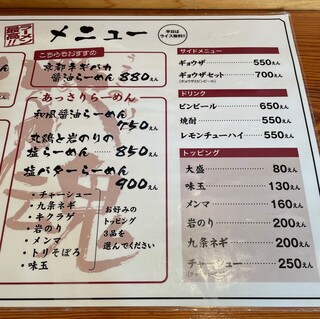 ラーメン
最高!!
メニュー
平日は
ライス無料!!
こちらもおすすめ
京都ネギバカ
醤油らーめん 880えん
あっさりらーめん
和風醤油らーめん
750えん
丸鶏と岩のりの
塩らーめん 850えん
塩バターらーめん
900えん
・チャーシュー
・九条ネギ
・キクラゲ
・岩のり
・メンマ
・トリそぼろ
・味玉
お好みの
トッピング
3品を
選んでください
サイドメニュー
ギョウザ 550えん
ギョウザセット 700えん
(ギョウザとビンビール)
ドリンク
ビンビール 650えん
焼酎 350えん
レモンチューハイ 550えん
トッピング
大盛 80えん
味玉 130えん
メンマ 160えん
岩のり 200えん
九条ネギ 200えん
チャーシュー 250えん